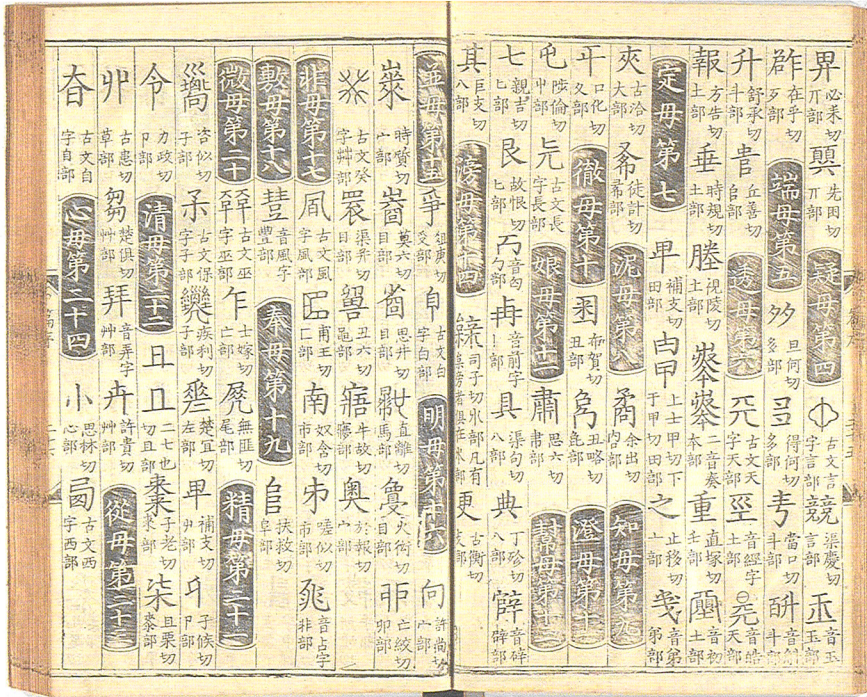 畀必未切丌部顨先困切丌部疑母第四古文言字言部競渠慶切言部玉音玉玉部
在乎切歹部端母第五夛旦何切多部得何切多部當口切斗部斗部
升舒承切斗部丘善切𠂤部誘母第六兲古文天字天部坙音經字土部音皓天部
報方告切土部垂時規切土部塍視陵切土部二音奏本部重直塚切土部音初土部
定母第七甲補支切田部甲上士甲切下于甲切田部之止移切亠部音第弟部
夾古洽切大部徒計切希部泥母第八矞余出切冏部知母第九
口化切夂部徹母第十布賀切丑部丑略切㲋部澄母第十一
屯陟倫切屮部古文長字長部娘母第十二肅思六切肅部幫母第十三
七親吉切匕部艮故恨切匕部丏音匃勹部音前字具渠句切八部典丁殄切八部音碎辥部
其巨支切八部滂母第十四司子切氺部凡有者俱在氺部更古衡切攴部
並母第十五爭俎庚切古文白字白部明母第十六向許尚切宀部
時賛切宀部莫六切目部思井切目部直離切馬部夐火衒切目部亡絞切卯部
古文癸字艸部瞏渠升切目部丑六切黽部寤牛故切㝱部奧於報切宀部
非母第十七凬古文風字風部匡甫王切匚部南奴含切巿部嗟似切巿部音占字非部
敷母第十八音風字豐部奉母第十九𠂤扶救切阜部
微母第二十古文巫字巫部乍士嫁切亡部無匪切尾部精母第二十一
咨似切子部古文保字子部疾利切子部楚宜切左部補支切子候切卩部
令力政切卩部清母第二十二且二七也切且部棗子老切柒且栗切桼部
丱古患切草部芻楚俱切艸部音弄字艸部卉許貴切艸部從母第二十三
古文自字自部心母第二十四小思林切心部古文西字西部